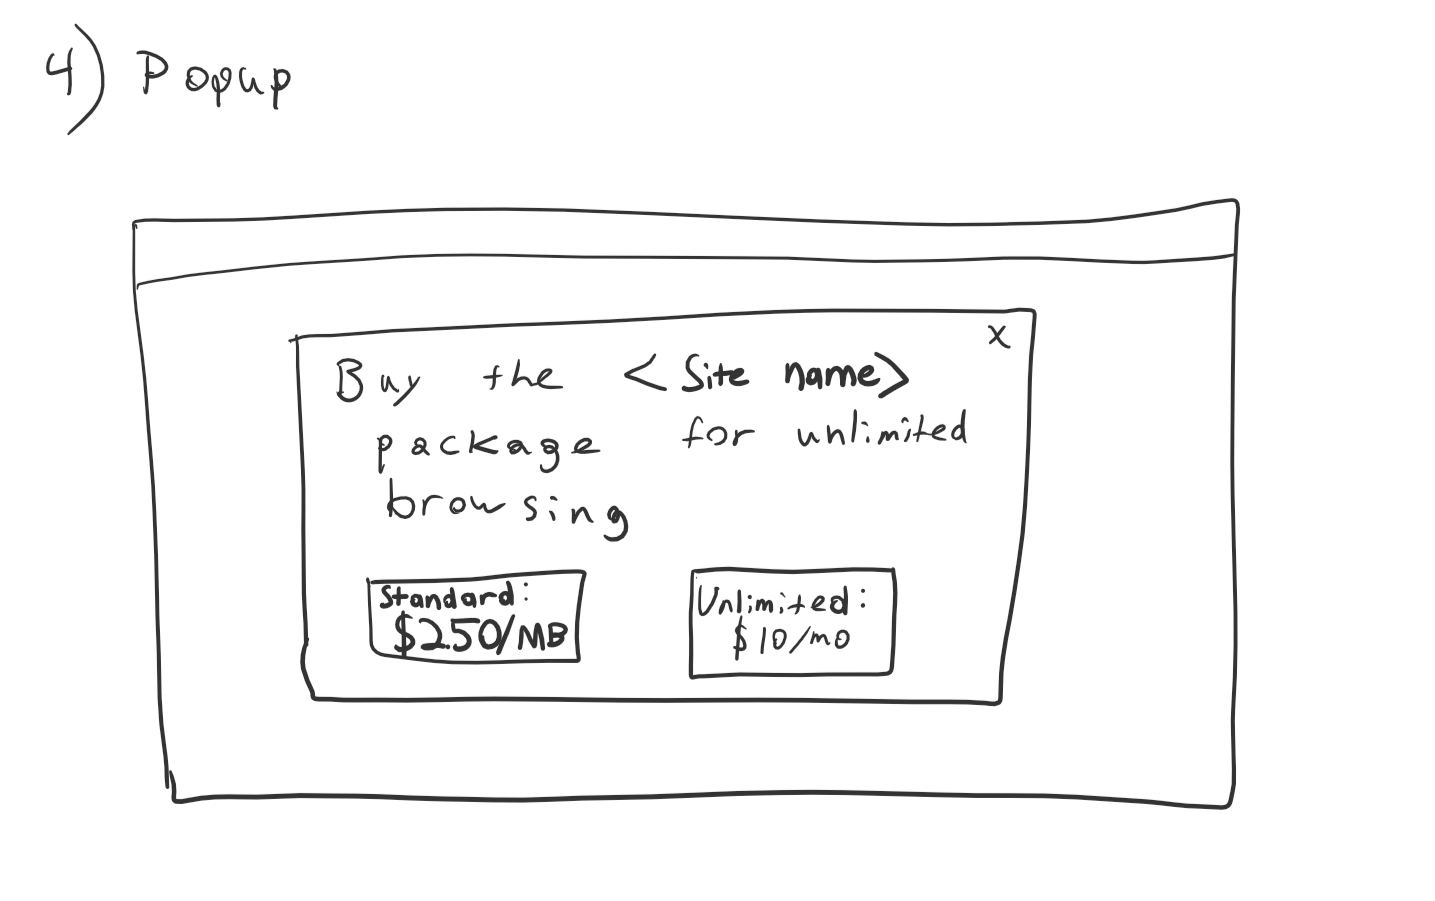 4) Popup
X
Buy the <Site name>
package for unlimited
browsing
Standard:
$2.50/MB
Unlimited:
$10/mo